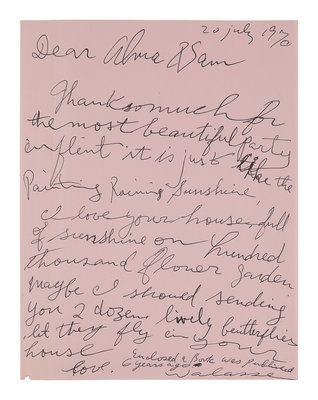 20 July 1970
Dear Alma & Sam
Thank so much for
the most beautiful Party
in flint it is just like the
Painting Raining Sunshine,
I love your house, full
of sunshine on hundred
thousand flower garden
maybe I should sending
you 2 dozen lively butterflies
let they fly in your
house
Enclosed a Book was published
6 years ago
love. Walasse